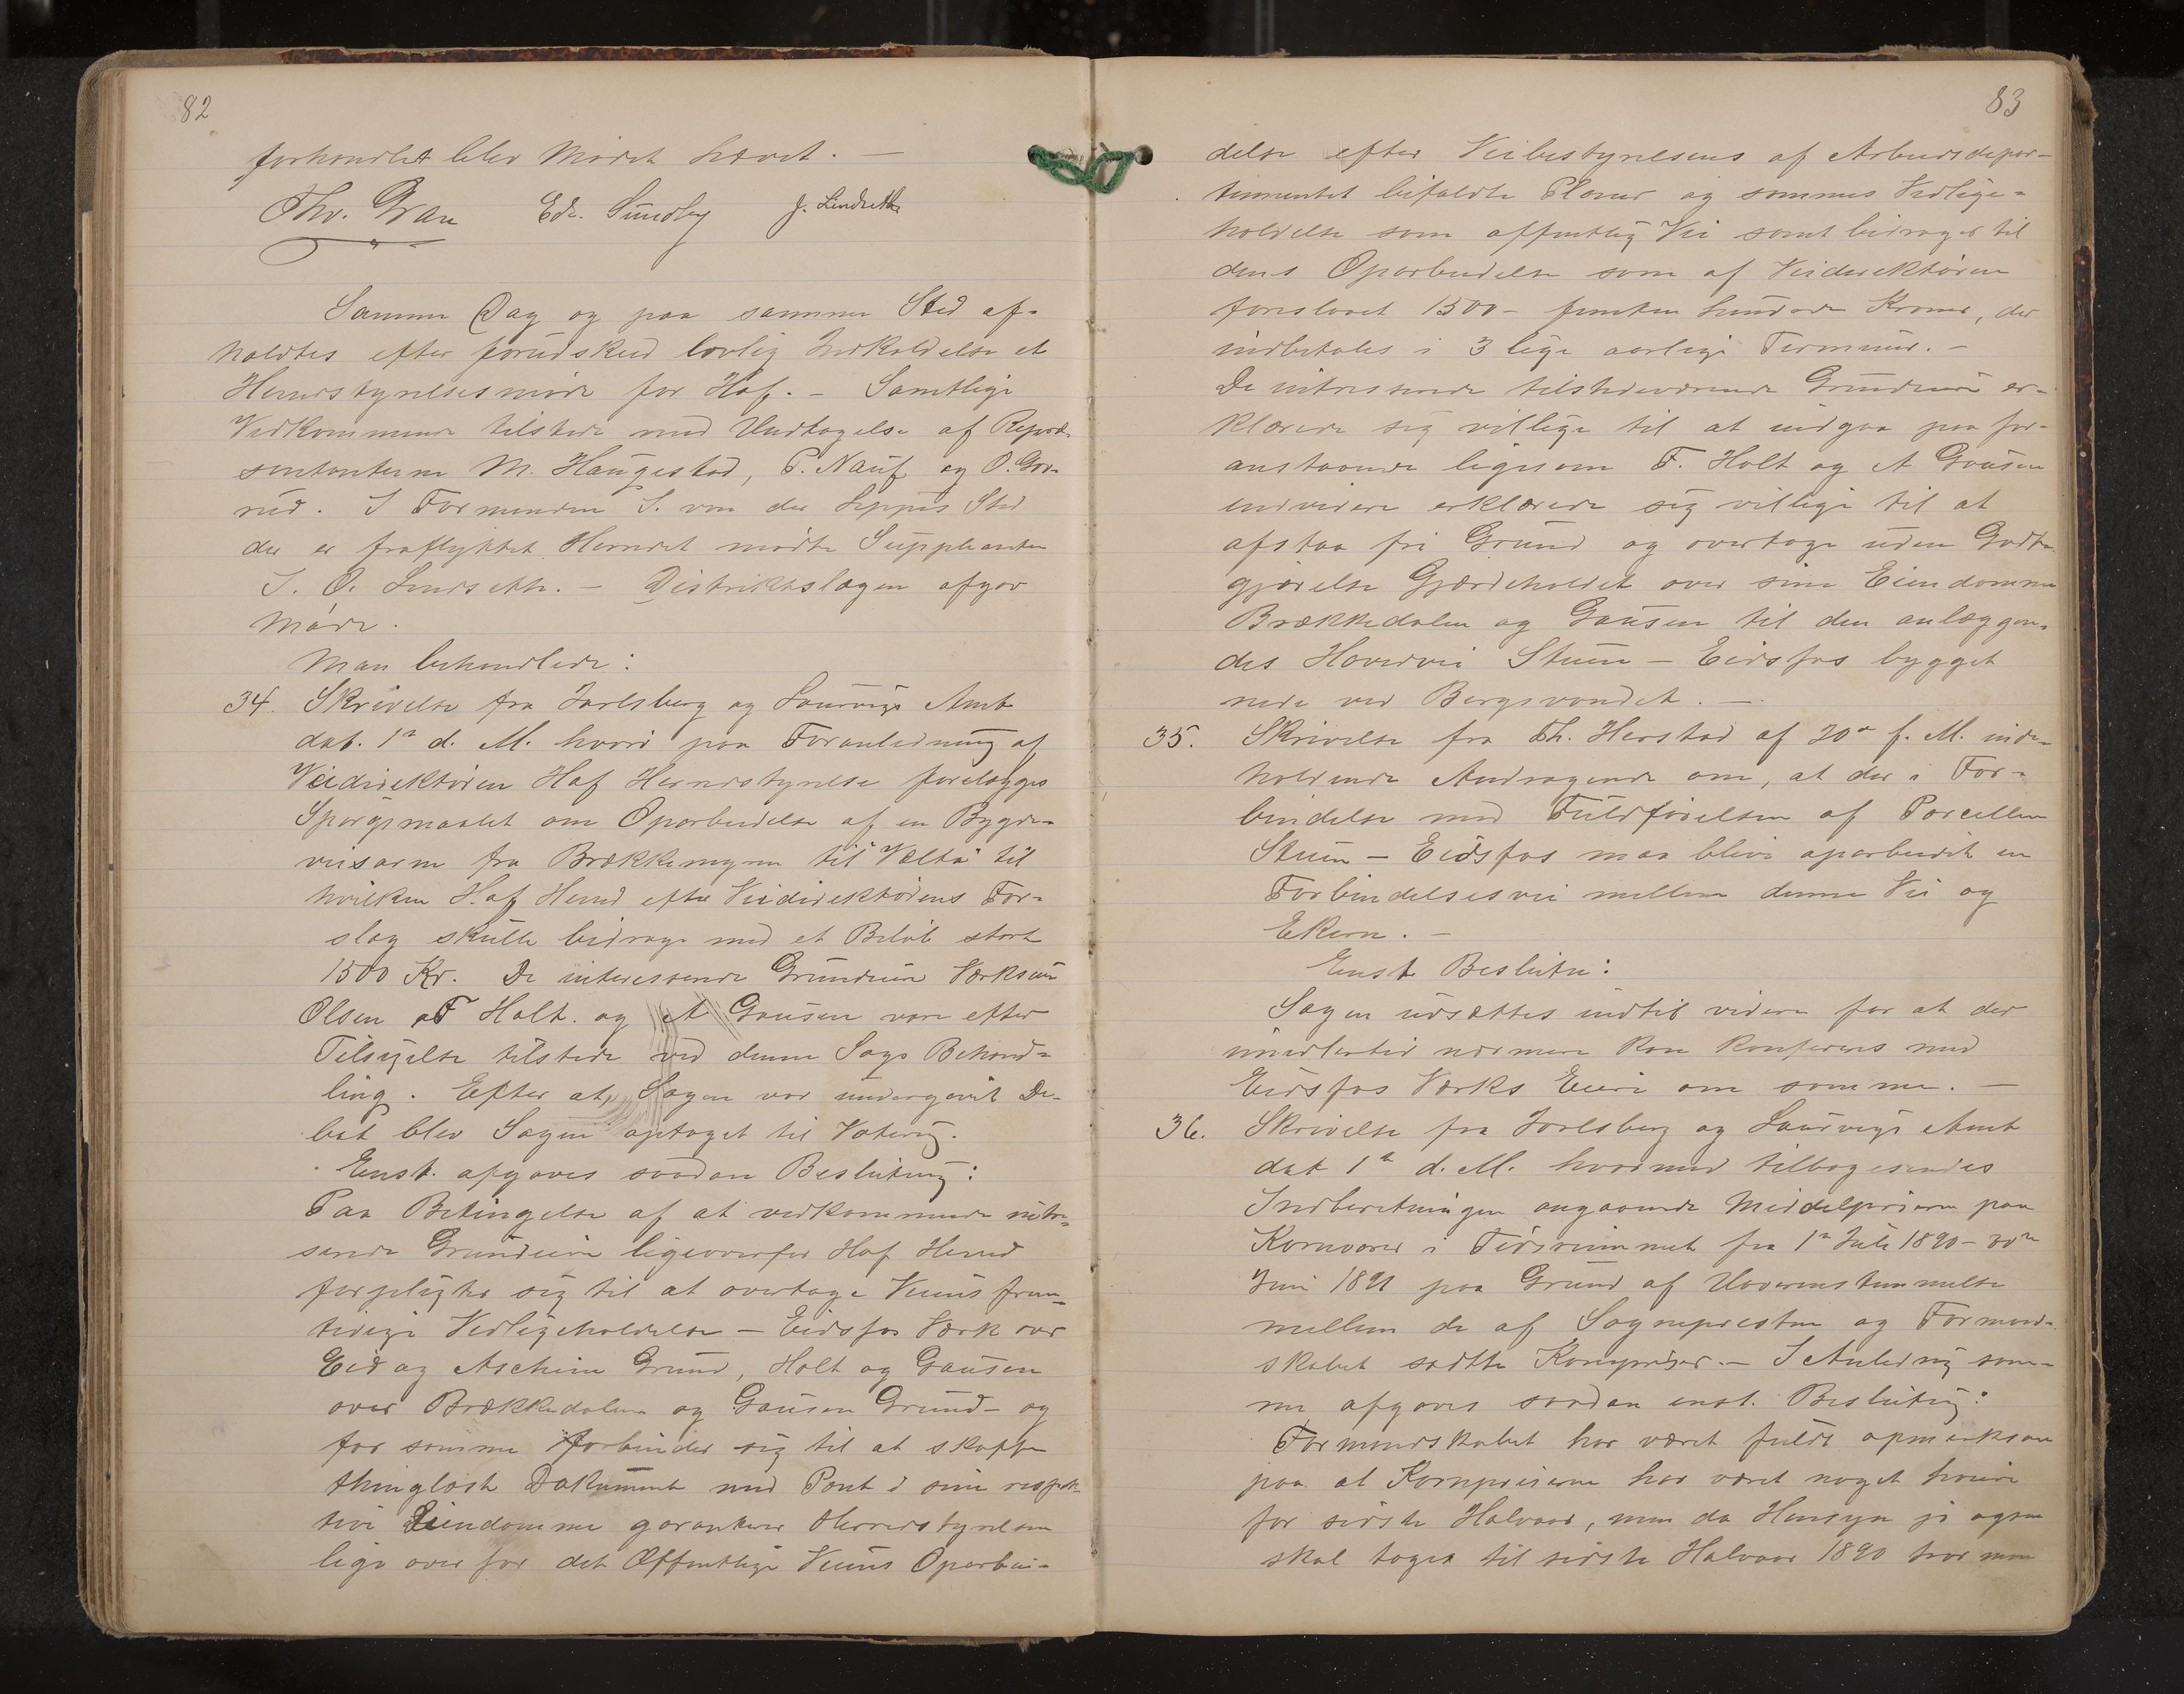 82
forhandlet blev Mødet hævet. —
Thv. Gran Edv. Sundby J. Lindseth
Samme Dag og paa samme Sted af-
holdtes efter forudskeed lovlig Indkaldelse et
Herredstyrelsesmøde for Hof. - Samtlige
Vedkommende tilstede med Undtagelse af Repræ-
sentanterne M. Haugestad, P. Nauf og O. Gor-
rud. I Formanden S. von der Lippes Sted
der er fraflyttet Herredet mødte Suppleanten
J. O. Lindseth. - Distriktslægen afgav
Møde.
Man behandlede:
34. Skrivelse fra Jarlsberg og Laurvigs Amt
dat. 1ste d. M. hvori paa Foranledning af
Veidirektøren Hof Herredstyrelse forelægges
Spørgsmaalet om Oparbeidelse af en Bygde-
veisarm fra Brækkemyren til "Vælta" til
hvilken Hof Herred efter Veidirektørens For-
slag skulle bidrage med et Beløb stort
1500 Kr. De interessende Grundeiere Værkseier
Olsen F Holt. og A Gausen vare efter
Tilsigelse tilstede ved denne Sags Behand-
ling. Efter at Sagen var undergivet De-
bat blev Sagen optaget til Votering.
Enst. afgaves saadan Beslutning:
Paa Betingelse af at vedkommende intres-
serede Grundeiere ligeoverfor Hof Herred
forpligter sig til at overtage Veiens frem-
tidige Vedligeholdelse - Eidsfos Værk over
Eid og Aschim Grund, Holt og Gausen
over Brækkedalen og Gausen Grund - og
for samme forbinder sig til at skaffe
thinglæst Dokument med Pant i sine respek-
tive Eiendomme garanterer Herredstyrelsen
lige over for det Offentlige Veiens Oparbei-
83
delse efter Veibestyrelsens af Arbeidsdepar-
tementet bifaldte Planer og sammes Vedlige-
holdelse som offentlig Vei samt bidrager til
dens Oparbeidelse som af Veidirektøren
foreslaaet 1500 - femten hundrede Kroner, der
indbetales i 3 lige aarlige Terminer. -
De intressende tilstedeværende Grundeiere er-
klærede sig villige til at indgaa paa for-
anstaaende ligesom F. Holt og A Gausen
endvidere erklærede sig villige til at
afstaa fri Grund og overtage uden Godt-
gjørelse Gjærdeholdet over sine Eiendomme
Brækkedalen og Gausen til den anlæggen-
des Hovedvei Steen - Eidsfos bygget
nede ved Bergsvandet. -
35. Skrivelse fra Th. Herstad af 20de f. M. inde-
holdende Andragende om, at der i For-
bindelse med Fuldførelsen af Parcellen
Steen - Eidsfos maa blive oparbeidet en
Forbindelsesvei mellem denne Vei og
Ekern. -
Enst Beslutn:
Sagen udsættes indtil videre for at der
imidlertid nærmere kan konfereres med
Eidsfos Værks Eiere om samme. -
36. Skrivelse fra Jarlsberg og Laurvigs Amt
dat 1ste d. M. hvormed tilbagesendes
Indberetningen angaaende Middelpriserne paa
Kornvarer i Tidsrummet fra 1ste Juli 1890 - 30te
Juni 1891 paa Grund af Uoverenstemmelse
mellem de af Sognepresten og Formand-
skabet sadtte Kornpriser. - I Anledning sam-
me afgaves saadan enst. Beslutning:
Formandskabet har været fuldt opmerksom
paa at Kornpriserne har været noget høiere
for sidste Halvaar, men da Hensyn jo ogsaa
skal tages til sidste Halvaar 1890 tror man